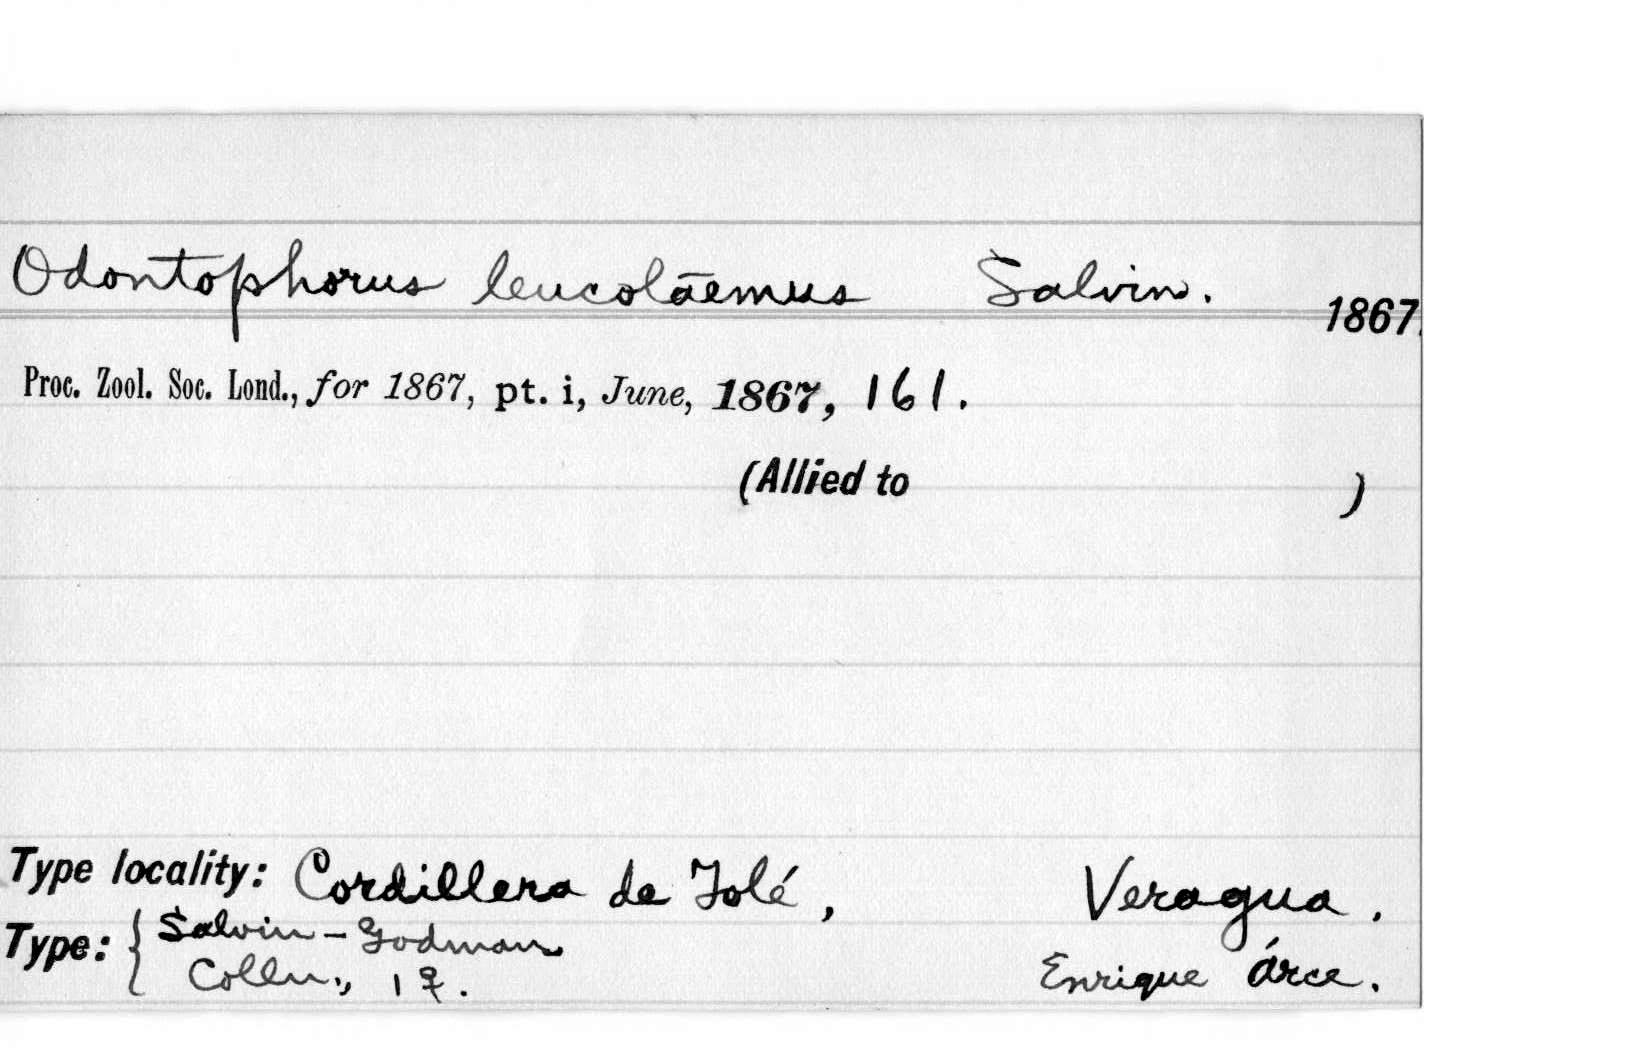 Odontophorus leucolāemus Salvin.
1867.
Proc. Zool. Soc. Lond., for 1867, pt. i, June, 1867, 161.
(Allied to )
Type locality: Cordillera de Tolé, Veragua.
Type: { Salvin-Godman
Colln., 1♀. Enrique Árce.